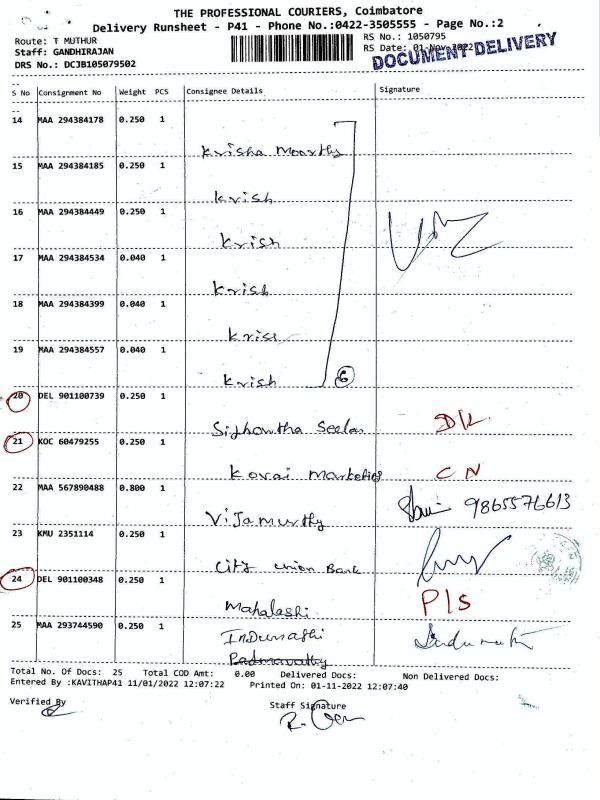 THE PROFESSIONAL COURIERS, Coimbatore
Delivery Runsheet - P41 - Phone No.:0422-3505555 - Page No.:2
Route: T MUTHUR RS No.: 1050795
Staff: GANDHIRAJAN RS Date: 01-Nov-2022
DRS No.: DCJB105079502 DOCUMENT DELIVERY
S No Consignment No Weight PCS Consignee Details Signature
14 MAA 294384178 0.250 1
Krisha Moorthy
15 MAA 294384185 0.250 1
Krish
16 MAA 294384449 0.250 1
Krish
17 MAA 294384534 0.040 1
Krish
18 MAA 294384399 0.040 1
Kris
19 MAA 294384557 0.040 1
Krish 6
20 DEL 901100739 0.250 1
D/L
21 KOC 60479255 0.250 1
Kovai Marketing C N
22 MAA 567890488 0.800 1
Vijamurthy 9865576613
23 KMU 2351114 0.250 1
City Union Bank
24 DEL 901100348 0.250 1
Mahalashi P/S
25 MAA 293744590 0.250 1
Indumathi
Padmavathy
Total No. Of Docs: 25 Total COD Amt: 0.00 Delivered Docs: Non Delivered Docs:
Entered By :KAVITHAP41 11/01/2022 12:07:22 Printed On: 01-11-2022 12:07:40
Verified By Staff Signature